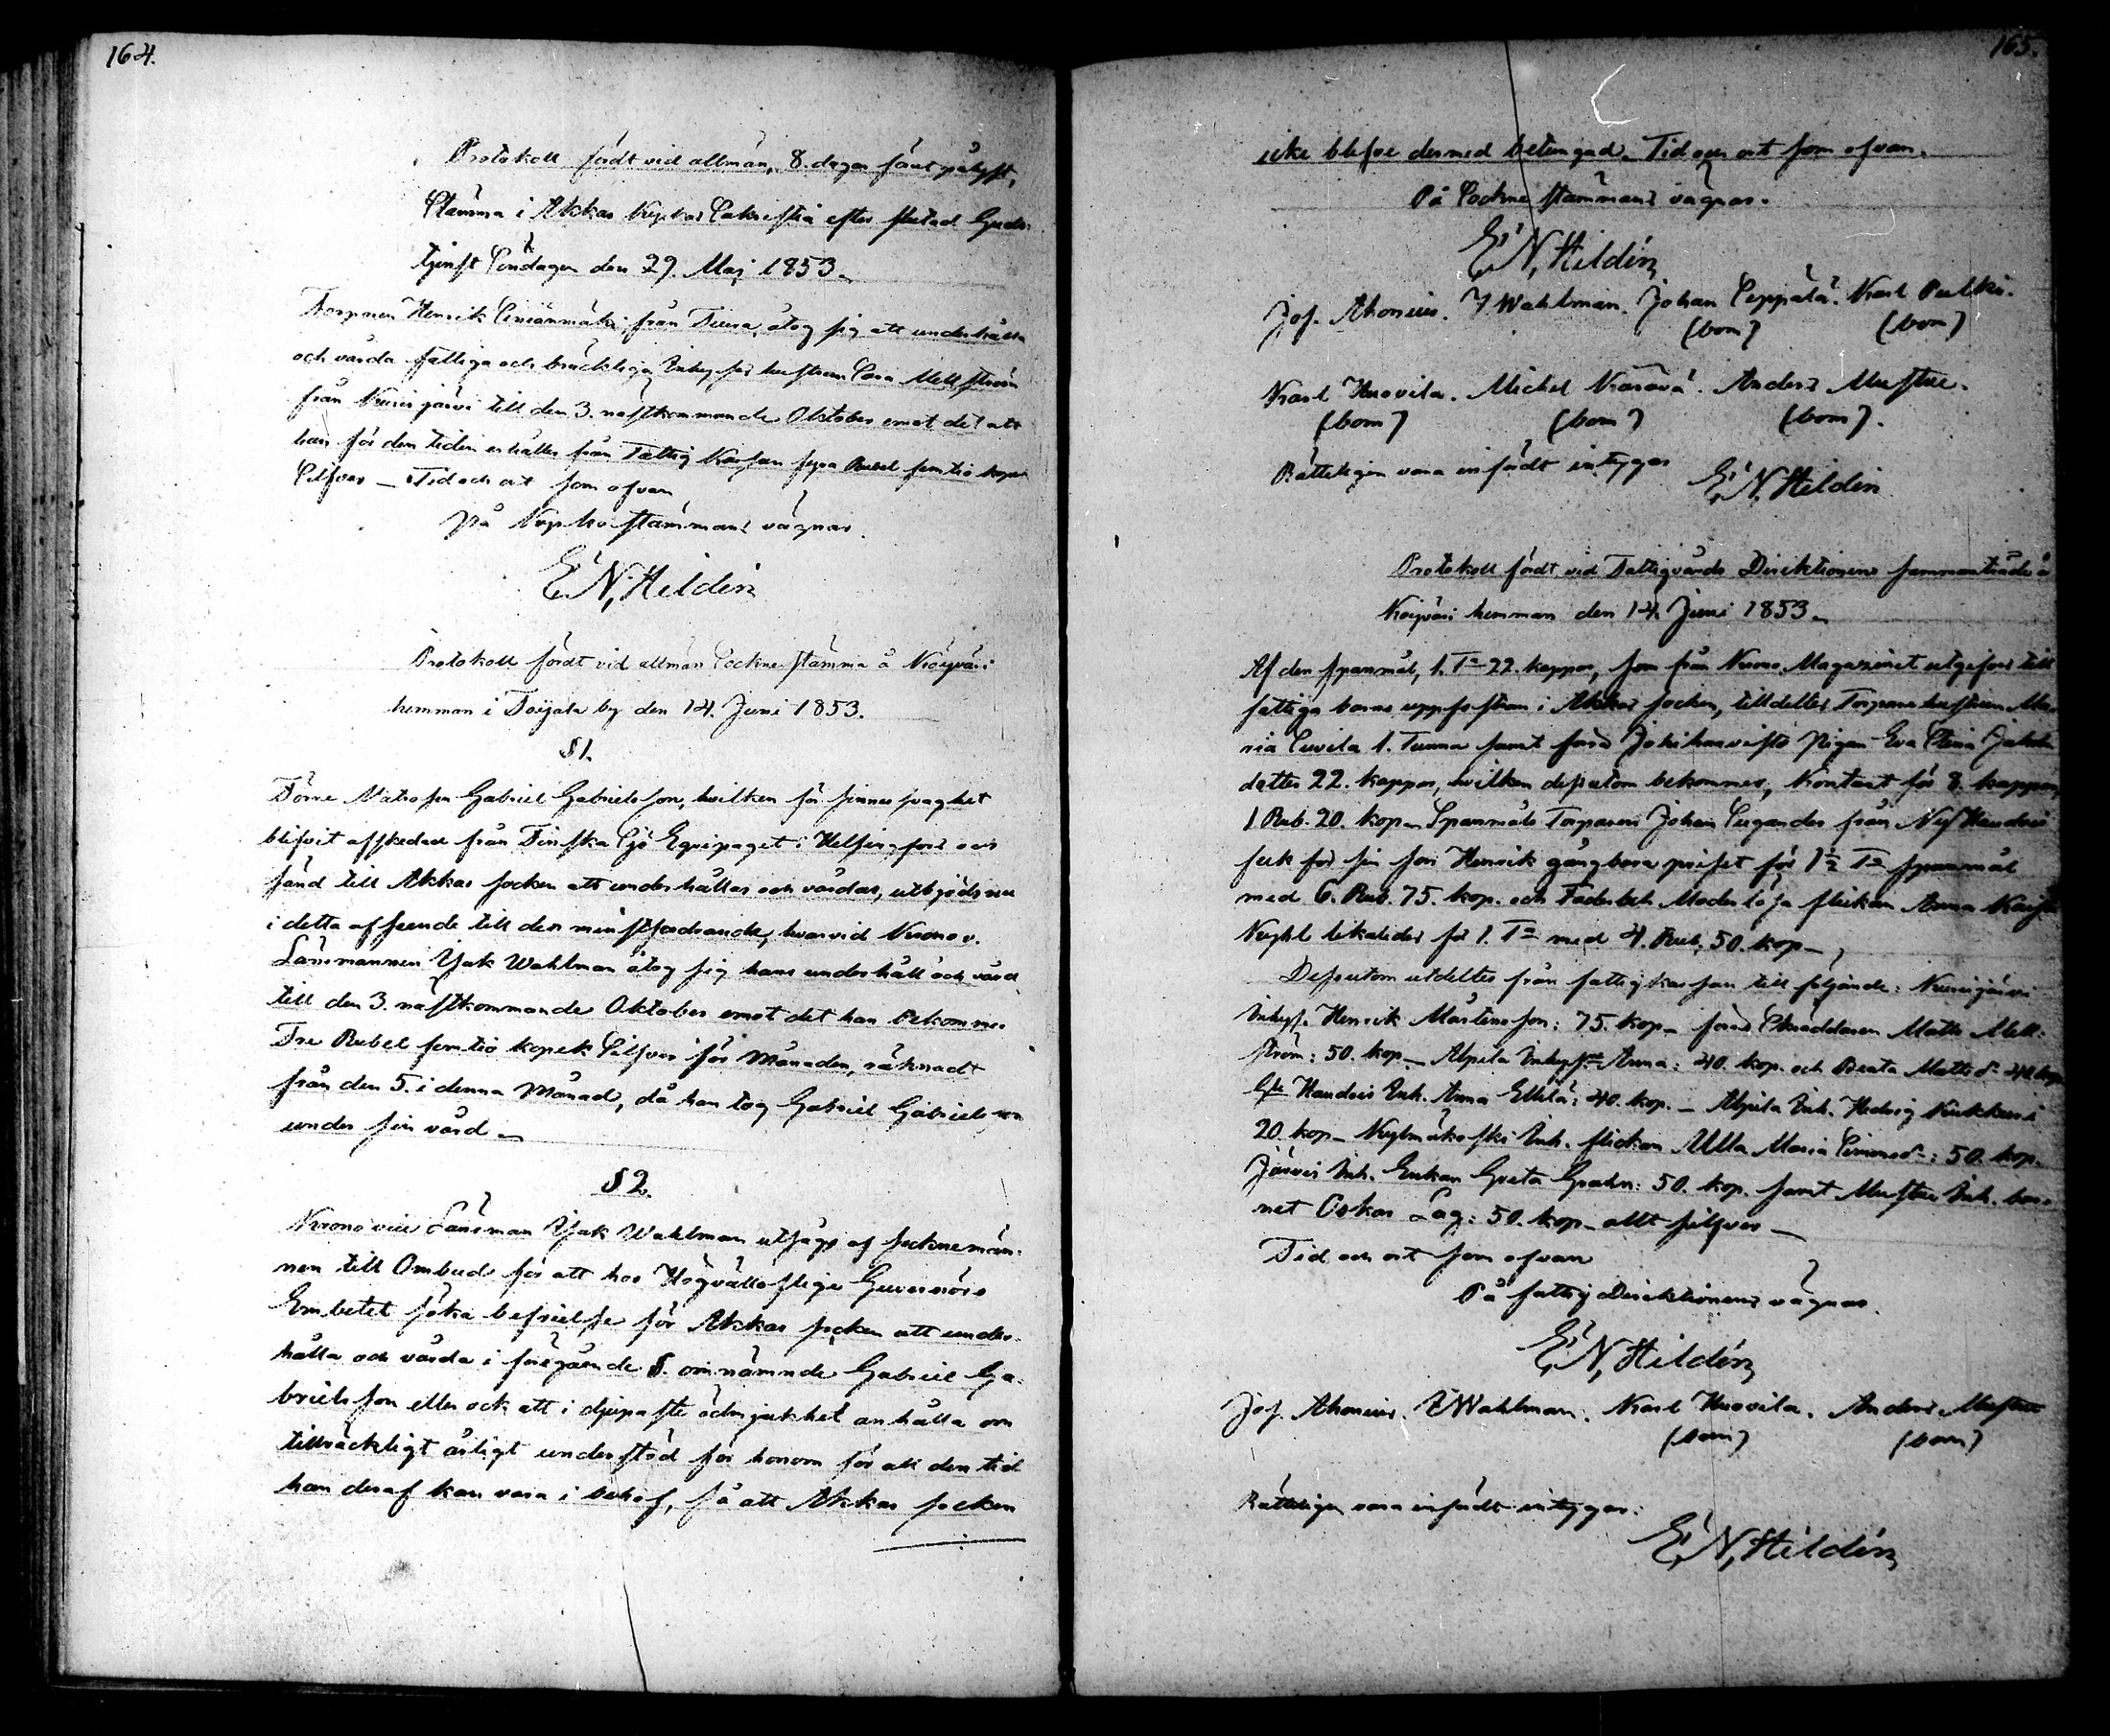 164.
Protokoll fördt vid allmän, 8. dagar förut pålyst,
Stämma i Akkas Kyrkas Sakristia efter slutad Guds-
tjenst Söndagen den 29. Maj 1853.
Torparen Henrik från åtog sig att underhålla
och vårda fattiga och bräckliga Inhyses hustrun Caisa Mellström
från Kurisjärvi till den 3. nästkommande Oktober emot det att
han för den tiden erhåller från Fattig Kassan fyra Rubel femtio kopek
Silfver — Tid och ort som ofvan
På Kyrkostämmans vägnar.
E. N. Hildén
Protokoll fördt vid allmän Sockne stämma å
hemman i Toijala by den 14. Juni 1853.
§ 1.
Förre Matrosen Gabriel Gabrielsson, hvilken för sinnes svaghet
blifvit afskedad från Finska Sjö Equipaget i Helsingfors och
sänd till Akkas socken att underhållas och vårdas, utbjöds nu
i detta afseende till den minstfordrande, hvarvid Krono v.
Länsmannen Isak Wahlman åtog sig hans underhåll och vård
till den 3. nästkommande Oktober emot det han bekommer
Tre Rubel femtio kopek Silfver för Månaden, räknadt
från den 5. i denna Månad, då han tog Gabriel Gabrielsson
under sin vård —
§ 2.
Krono vice Länsman Isak Wahlman utsågs af sockenemän-
nen till Ombud för att hos Högvälloflige Guvernörs
Embetet söka befrielse för Akkas socken att under-
hålla och vårda i föregående §. omnämnde Gabriel Ga-
brielsson eller ock att i djupaste ödmjukhet anhålla om
tillräckligt årligt understöd för honom för all den tid
han deraf kan vara i behof, så att Akkas socken
165.
icke blefve dermed betungad. Tid och ort som ofvan.
På Sockne stämmans vägnar.
E. N. Hildén
Jos. Ahonius. I Wahlman. Johan Seppälä. Karl Pulkki.
(bom) (bom)
Karl Huovila. Michel Anders Mustue.
(bom) (bom) (bom).
Rätteligen vara infördt intygar
E. N. Hildén
Protokoll fördt vid Fattigvårds Direktionens sammanträde å
hemman den 14. Juni 1853.
Af den spannmål, 1. T:a 22. kappor, som från Krono Magazinet utgifvas till
fattiga barns uppfostran i Akkas socken, tilldeltes Torpare hustrun Ma-
ria 1. Tunna samt pigan Eva Stina
dotter 22. kappor, hvilken dessutom bekommer, Kontant för 8. kappor
1 Rub. 20. kop. Spannmåls Torparen Johan från
fick för sin son Henrik gångbara priset för 1½ T:a spannmål
med 6. Rub. 75. kop. och Fader och Moder lösa flickan Anna
likaledes för 1. T:a med 4. Rub. 50. kop —
Dessutom utdeltes från fattig kassan till följande: Kurisjärvi
Inhys. Henrik Mårtensson: 75. kop — Skräddaren Matts Mell-
ström: 50. kop — Alpila Inhyses Anna: 40. kop. och Beata Matts d:r 40. kop
Inh. Anna Ellilä: 40. kop. — Alpila Inh. Hedvig Kukkari
20. kop — Kylmäkoski Inh. flickan Ulla Maria Simonsd:r: 50. kop.
Järvis Inh. Enkan Greta Grahn: 50. kop. samt Mustue Inh. bar-
net Oskar Lag: 50. kop — allt silfver —
Tid och ort som ofvan
På fattig Direktionens vägnar.
E. N. Hildén
Jos. Ahonius. I Wahlman. Karl Huovila. Anders Mustue
(bom) (bom)
Rätteligen vara infördt intygar:
E. N. Hildén